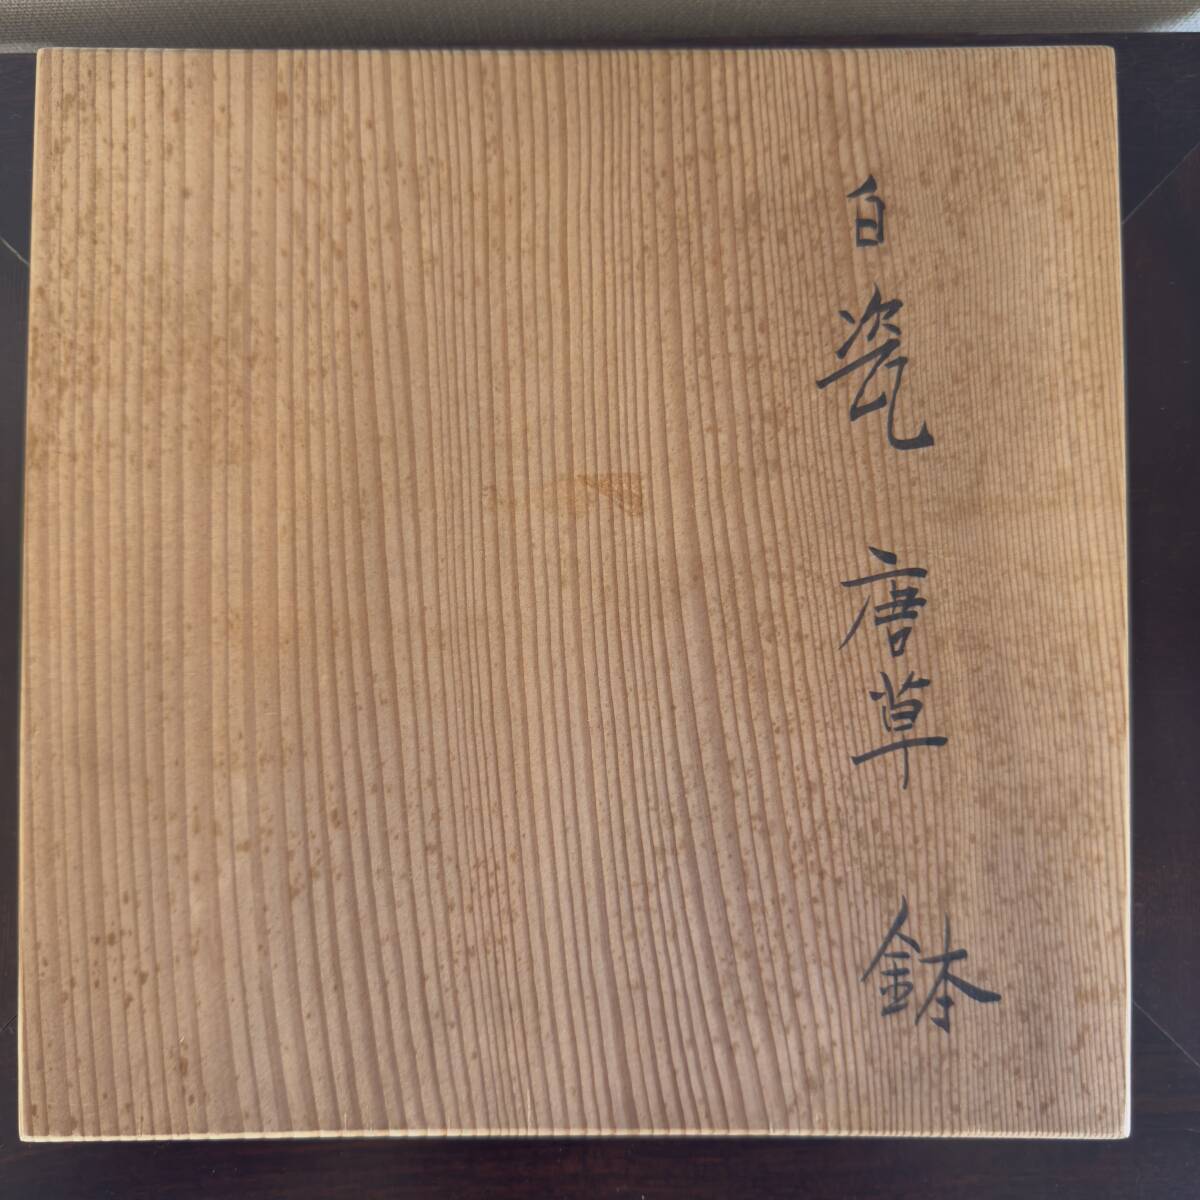 白瓷唐草鉢